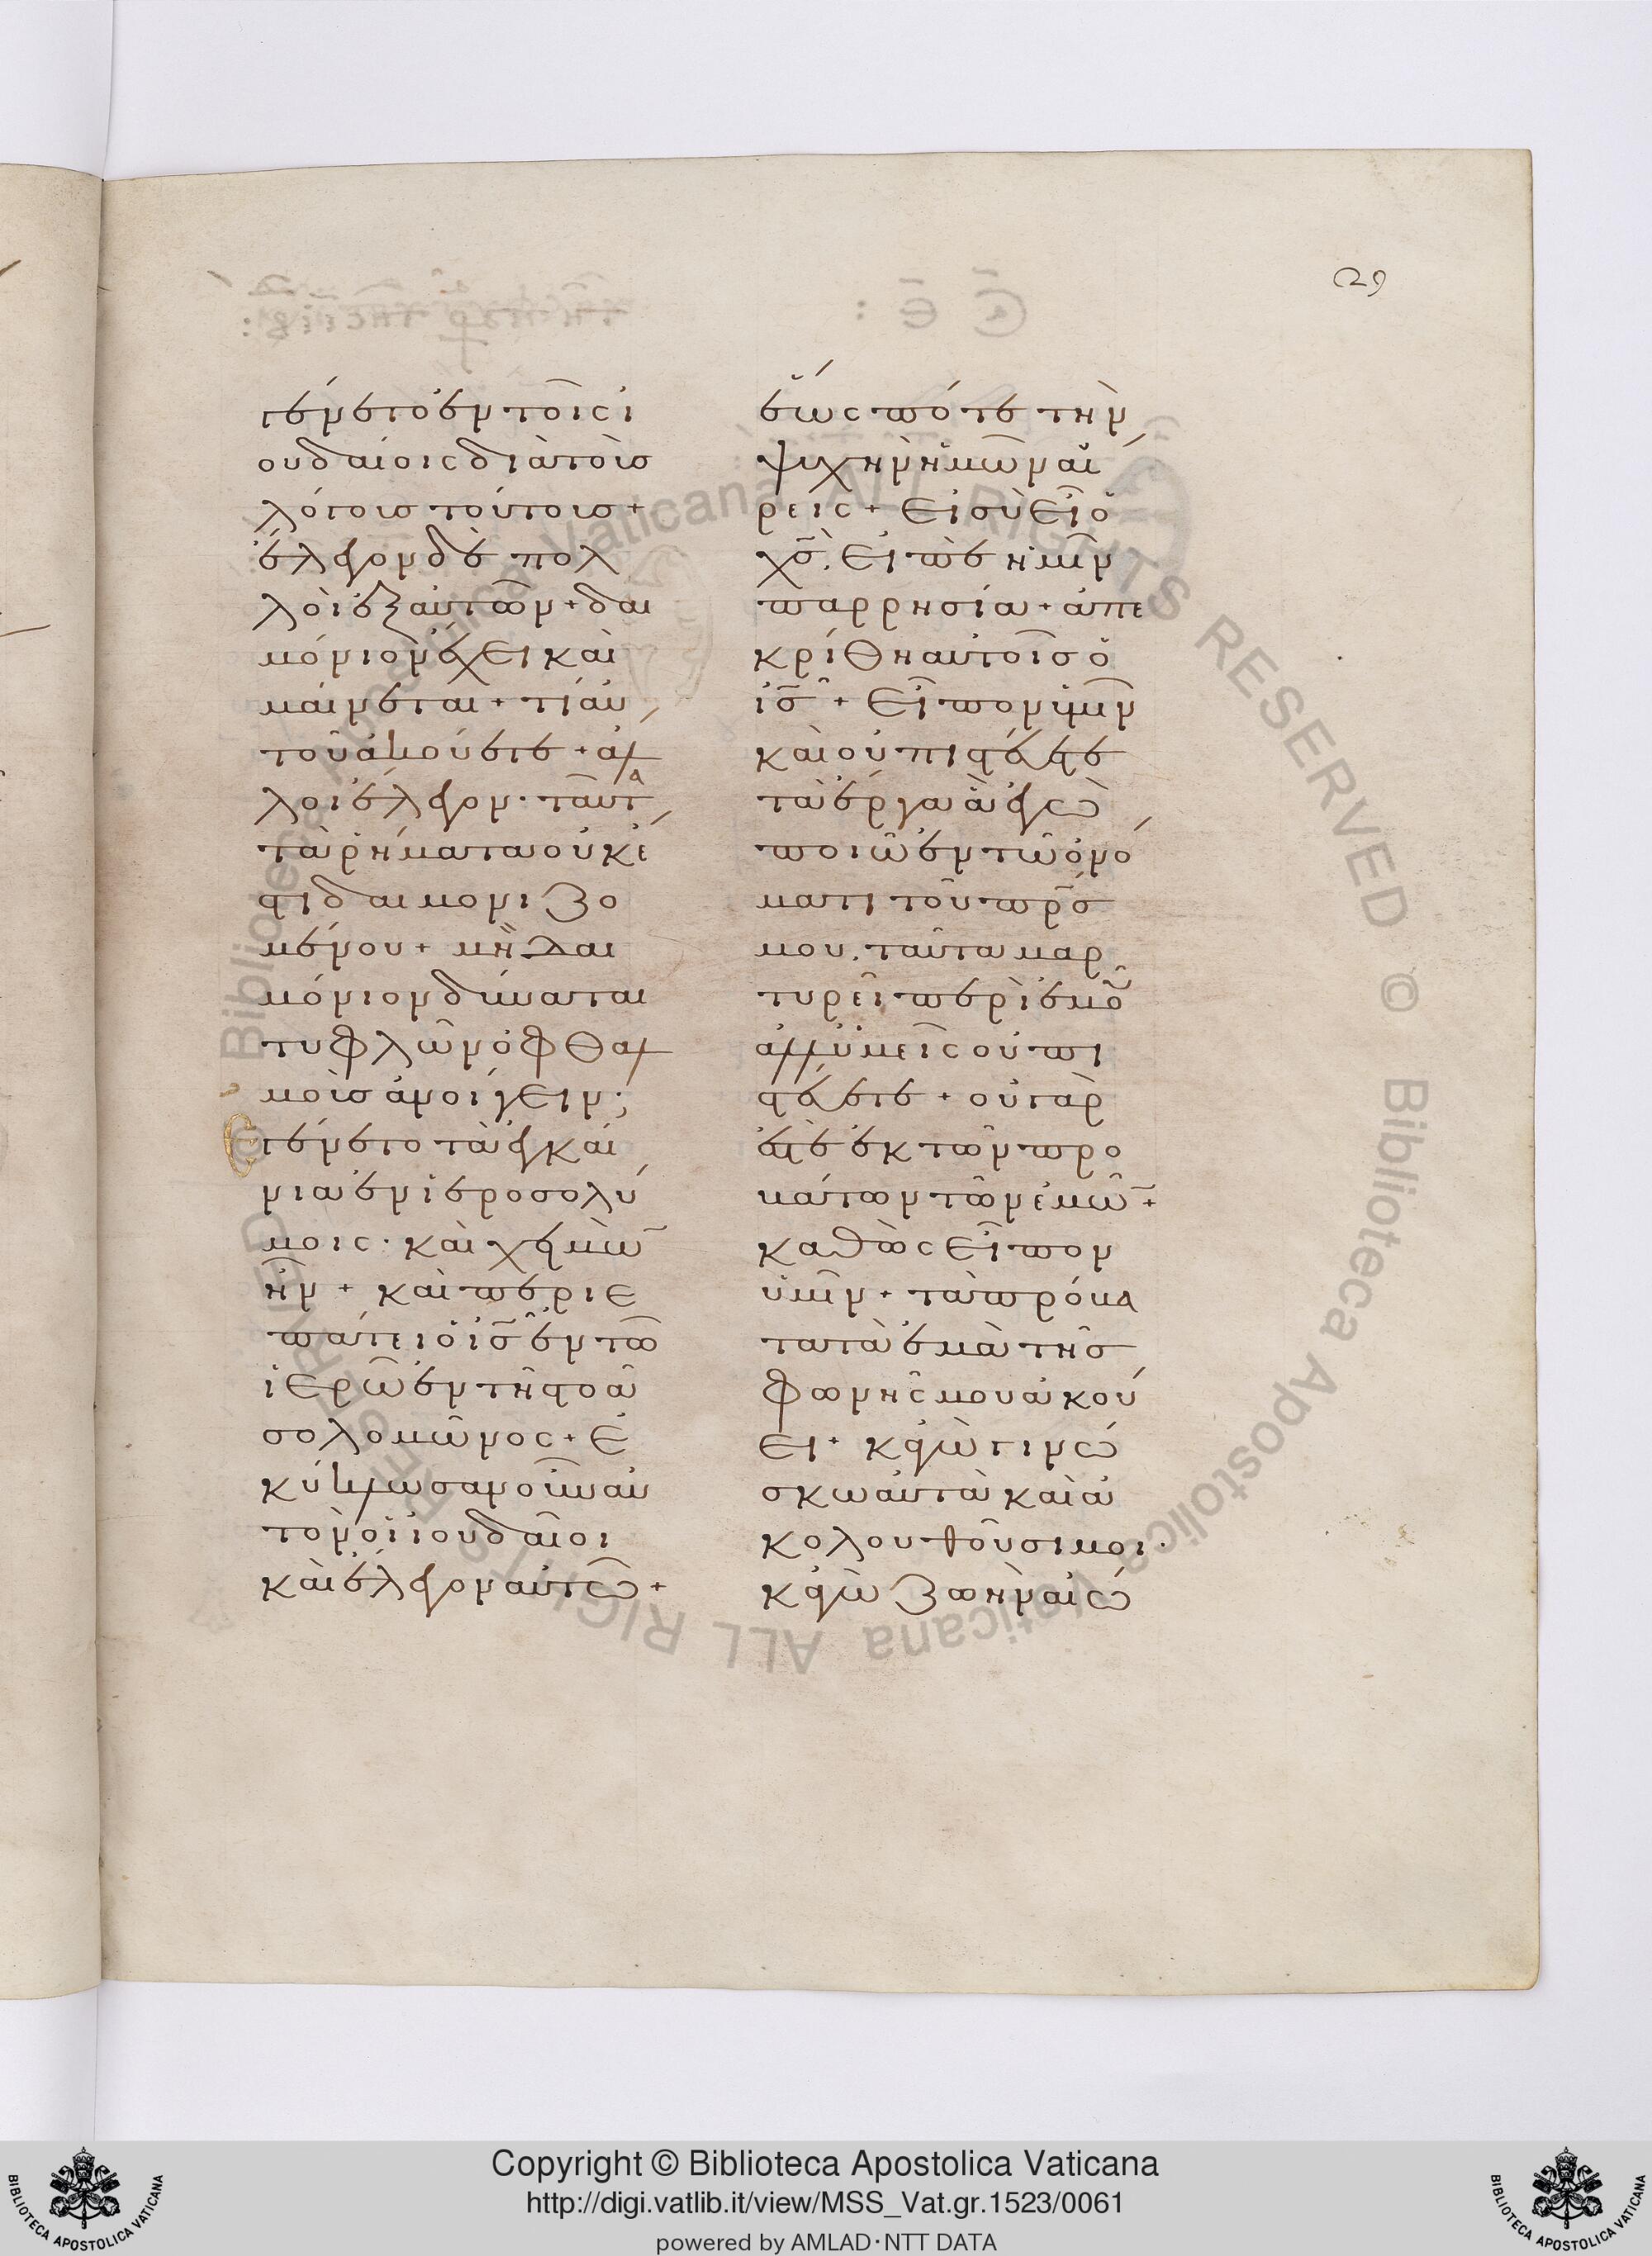 29
γένετο ἐν τοῖς ἰ
ουδαίοις διὰ τοὺσ
λόγουσ τούτουσ +
ἔλεγον δὲ πολ
λοὶ ἐξ αὐτῶν + δαι
μόνιον ἔχει καὶ
μαίνεται + τί αὐ
τοῦ ἀκούετε + ἄλ
λοι ἔλεγον · ταῦτα
τὰ ῥήματα οὐκ ἔ
στι δαιμονιζο
μένου + μὴ δαι
μόνιον δύναται
τυφλῶν ὀφθαλ
μοὺσ ἀνοίγειν ;
Εγένετο τὰ ἐγκαί
νια ἐν ἱεροσολύ
μοις · καὶ χειμὼ̅
ἦν + καὶ περιε
πάτει ὁ ι̅σ̅ ἐν τῶ
ἱερῶ ἐν τῆ στοᾶ
σολομῶνος + ἐ
κύκλωσαν οὖν αὐ
τὸν οἱ ἰουδαῖοι
καὶ ἔλεγον αὐτῶ +
ἕως πότε τὴν
ψυχὴν ἡμῶν αἴ
ρεις + εἰ σὺ εἶ ὁ
χ̅σ̅ . εἰπὲ ἡμῖν
παρρησία + ἀπε
κρίθη αὐτοῖσ ὁ
ι̅σ̅ + εἶπον ὑμῖν
καὶ οὐ πιστεύετε
τὰ ἔργα ἃ ἐγὼ
ποιῶ ἐν τῶ ὀνό
ματι τοῦ π̅ρ̅σ̅
μου . ταῦτα μαρ
τυρεῖ περὶ ἐμοῦ
ἀλλ ὑμεῖς οὐ πι
στεύετε + οὐ γὰρ
ἐστὲ ἐκ τῶν προ
βάτων τῶν ἐμῶ̅ +
καθὼς εἶπον
ὑμῖν + τὰ πρόβα
τα τὰ ἐμὰ τῆσ
φωνῆς μου ἀκού
ει + κἀγὼ γινώ
σκω αὐτὰ καὶ ἀ
κολουθοῦσι μοι ·
κἀγὼ ζωὴν αἰώ
Copyright © Biblioteca Apostolica Vaticana
http://digi.vatlib.it/view/MSS_Vat.gr.1523/0061
powered by AMLAD·NTT DATA
BIBLIOTECA APOSTOLICA VATICANA
BIBLIOTECA APOSTOLICA VATICANA